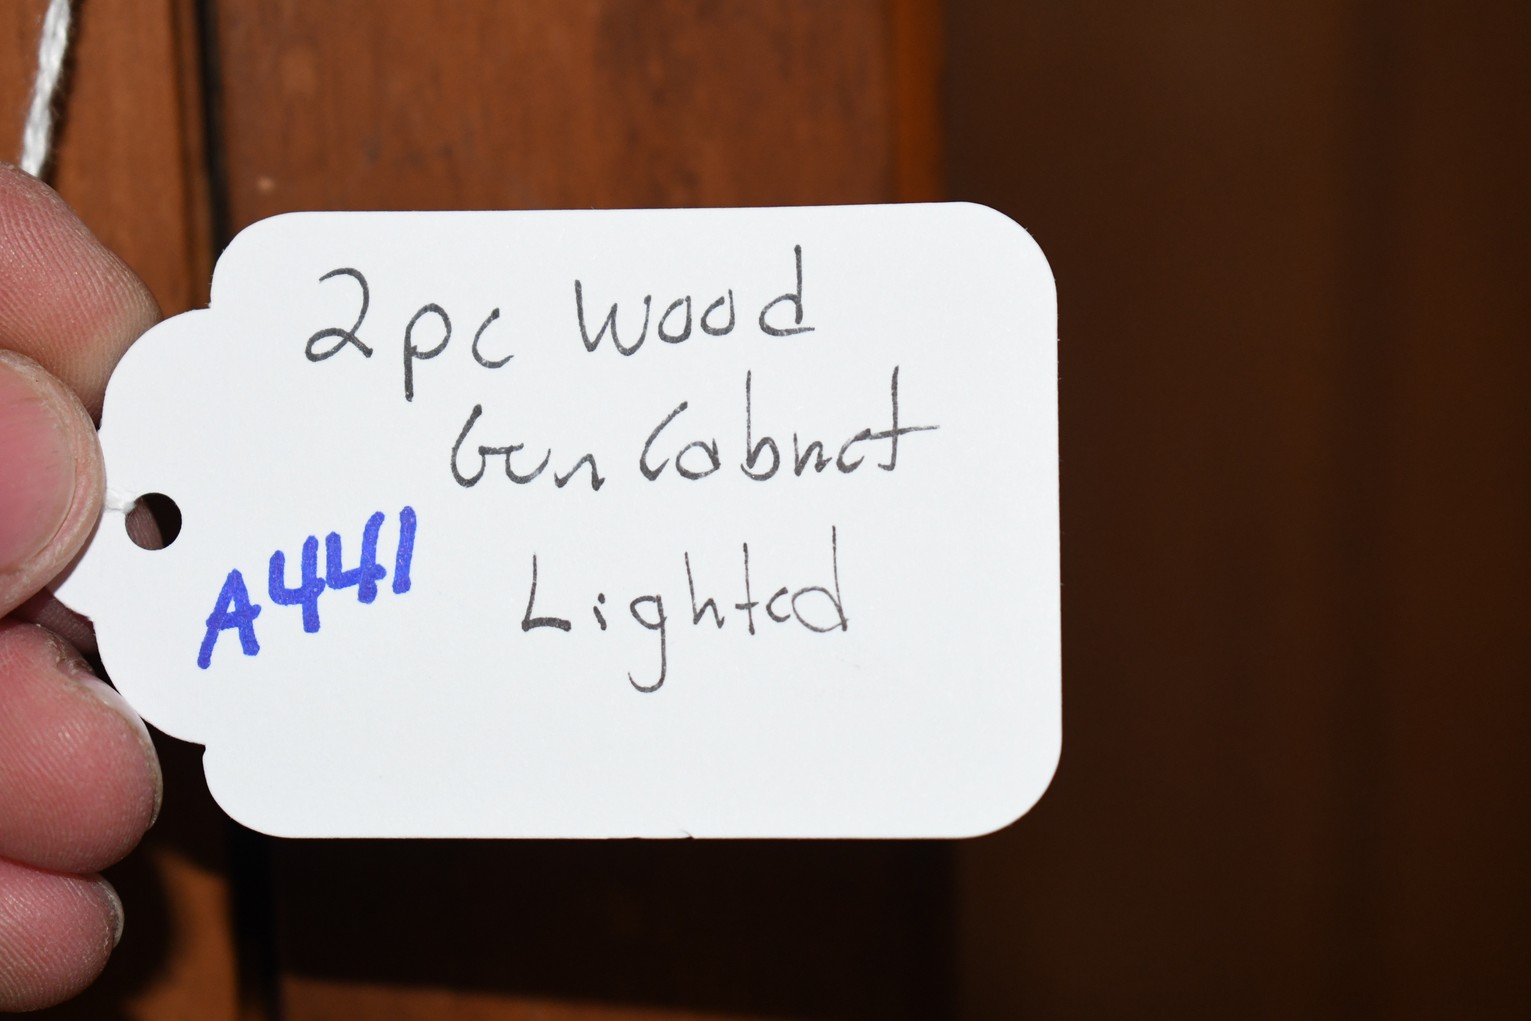 2pc Wood
Gun Cabnet
Lighted
A441